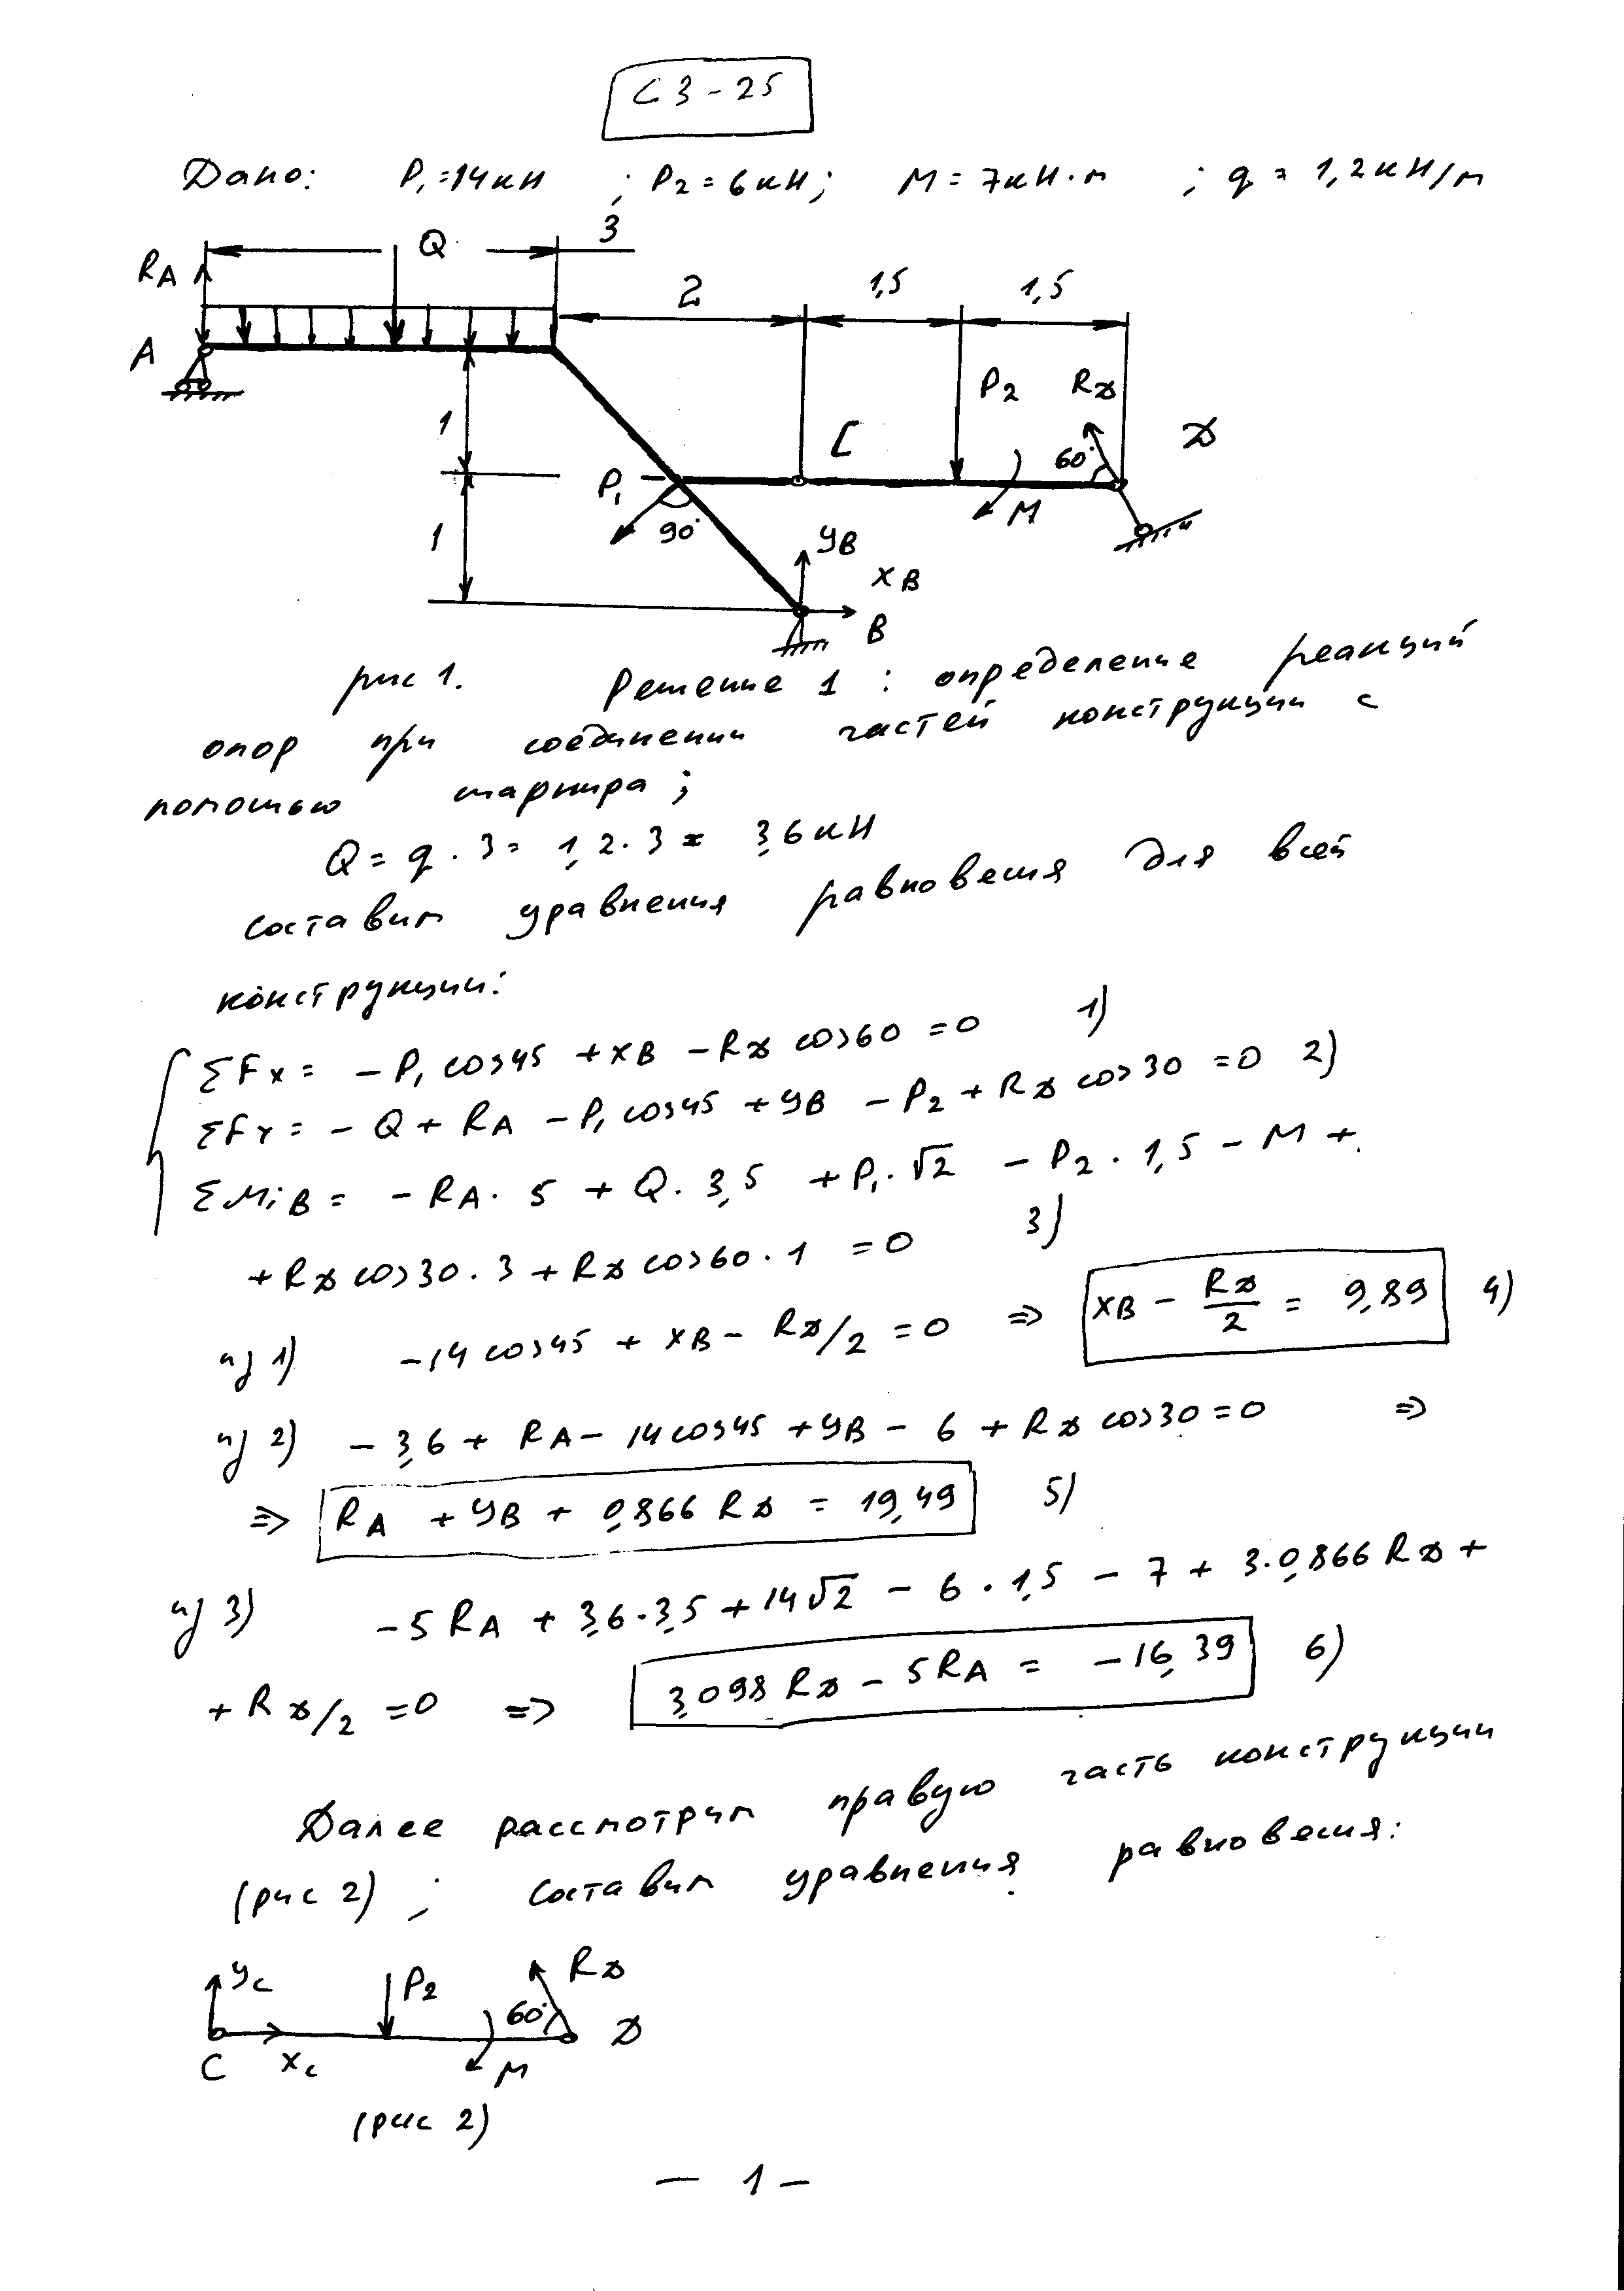 С3-25
Дано: P₁=14кН ; P₂=6кН; M=7кН·м ; q=1,2кН/м
Q 3
RA
2 1,5 1,5
A
P₂ RД
1 C 60° Д
P₁ M
90°
1 yB
xB
B
рис 1. Решение 1 : определение реакций
опор при соединении частей конструкции с
помощью шарнира;
Q = q·3 = 1,2·3 = 3,6кН
составим уравнения равновесия для всей
конструкции:
ΣFx = -P₁cos45 +xB -RД cos60 =0 1)
ΣFY = -Q + RA -P₁cos45 +yB -P₂ +RД cos30 =0 2)
ΣMiB = -RA·5 + Q·3,5 +P₁·√2 -P₂·1,5 -M +
+RД cos30·3 +RД cos60·1 =0 3)
из 1) -14cos45 + xB - RД/2 =0 => xB - RД/2 = 9,89 4)
из 2) -3,6 + RA - 14cos45 +yB - 6 + RД cos30=0 =>
=> RA + yB + 0,866 RД = 19,49 5)
из 3) -5RA + 3,6·3,5 +14√2 - 6·1,5 - 7 + 3·0,866 RД +
+ RД/2 =0 => 3,098 RД - 5RA = -16,39 6)
Далее рассмотрим правую часть конструкции
(рис 2) ; составим уравнения равновесия:
yc P₂ RД
60° Д
C xc M
(рис 2)
- 1 -